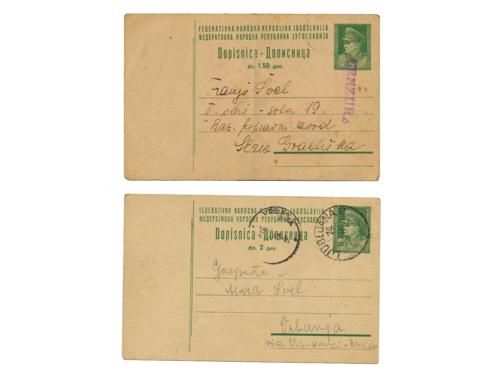 FEDERATIVNA NARODNA REPUBLIKA JUGOSLAVIJA
ФЕДЕРАТИВНА НАРОДНА РЕПУБЛИКА ЈУГОСЛАВИЈА
Dopisnica - Дописница
din. 1.50 дин.
CENZUR
Franjo Švel
soba 19.
Kaz. popravni zavod
Stara Gradiška
FEDERATIVNA NARODNA REPUBLIKA JUGOSLAVIJA
ФЕДЕРАТИВНА НАРОДНА РЕПУБЛИКА ЈУГОСЛАВИЈА
Dopisnica - Дописница
din. 2 дин.
LJUBLJANA
Gospođa
Mara Švel
Vrbanja
via Vinkovci